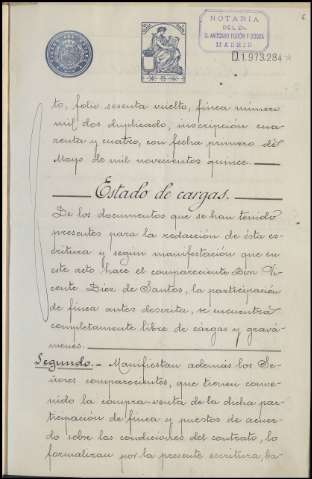 6
NOTARIA
DEL Dr.
MADRID
D.1.973.284
to, folio sesenta vuelto, finca número
mil dos duplicado, inscripción cua-
renta y cuatro, con fecha primero de
Mayo de mil novecientos quince.
Estado de cargas.
De los documentos que se han tenido
presentes para la redacción de ésta es-
critura y segun manifestación que en
este acto hace el compareciente Don Vi-
cente Diez de Santos, la participación
de finca antes descrita, se encuentra
completamente libre de cargas y gravá-
menes.
Segundo.- Manifiestan además los Se-
ñores comparecientes, que tienen conve-
nido la compra-venta de la dicha par-
ticipación de finca y puestos de acuer-
do sobre las condiciones del contrato, lo
formalizan por la presente escritura, ba-